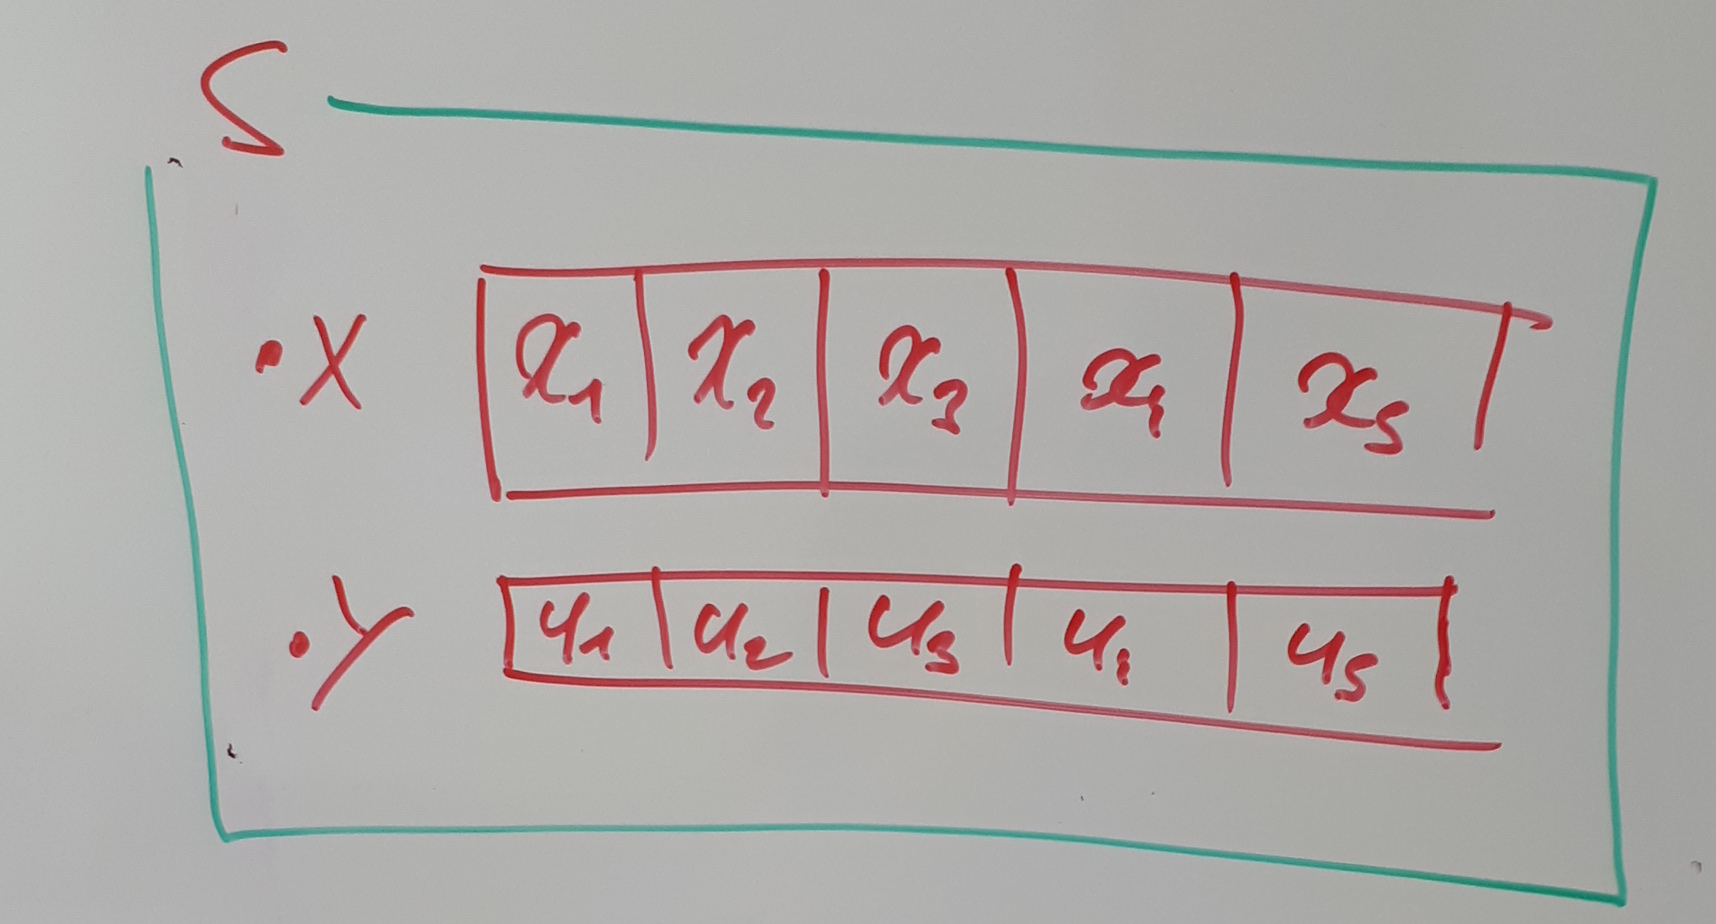 S
• X x1 x2 x3 x4 x5
• Y y1 y2 y3 y4 y5